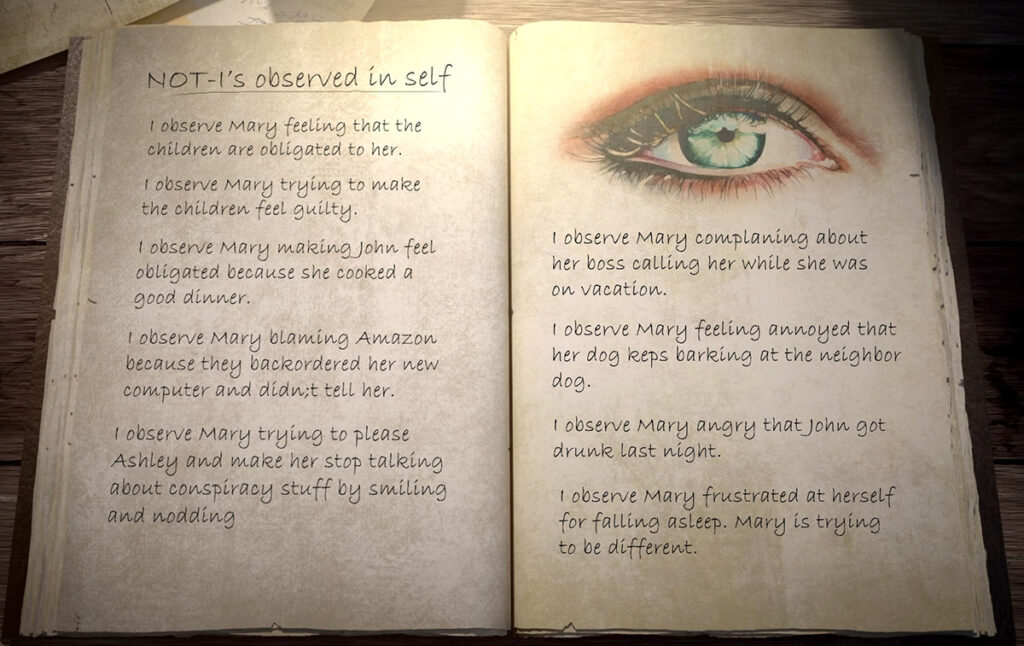 NOT-I's observed in self
I observe Mary feeling that the
children are obligated to her.
I observe Mary trying to make
the children feel guilty.
I observe Mary making John feel
obligated because she cooked a
good dinner.
I observe Mary blaming Amazon
because they backordered her new
computer and didn;t tell her.
I observe Mary trying to please
Ashley and make her stop talking
about conspiracy stuff by smiling
and nodding
I observe Mary complaning about
her boss calling her while she was
on vacation.
I observe Mary feeling annoyed that
her dog keps barking at the neighbor
dog.
I observe Mary angry that John got
drunk last night.
I observe Mary frustrated at herself
for falling asleep. Mary is trying
to be different.